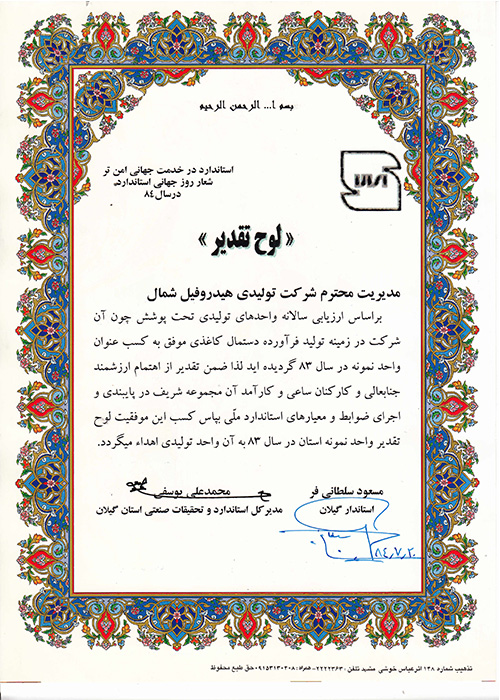 بسم ا... الرحمن الرحیم
استاندارد در خدمت جهانی امن تر
شعار روز جهانی استاندارد
در سال ۸۴
« لوح تقدیر »
مدیریت محترم شرکت تولیدی هیدروفیل شمال
براساس ارزیابی سالانه واحدهای تولیدی تحت پوشش چون آن
شرکت در زمینه تولید فرآورده دستمال کاغذی موفق به کسب عنوان
واحد نمونه در سال ۸۳ گردیده اید لذا ضمن تقدیر از اهتمام ارزشمند
جنابعالی و کارکنان ساعی و کارآمد آن مجموعه شریف در پایبندی و
اجرای ضوابط و معیارهای استاندارد ملّی بپاس کسب این موفقیت لوح
تقدیر واحد نمونه استان در سال ۸۳ به آن واحد تولیدی اهداء میگردد.
مسعود سلطانی فر
استاندار گیلان
محمدعلی یوسفی
مدیرکل استاندارد و تحقیقات صنعتی استان گیلان
۸۴/۷/۲۰
تذهیب شماره ۱۳۸ اثرعباس خوشی مشهد تلفن: ۲۲۲۲۳۶۳ - همراه: ۰۹۱۵۳۱۳۰۴۰۸ حق طبع محفوظ